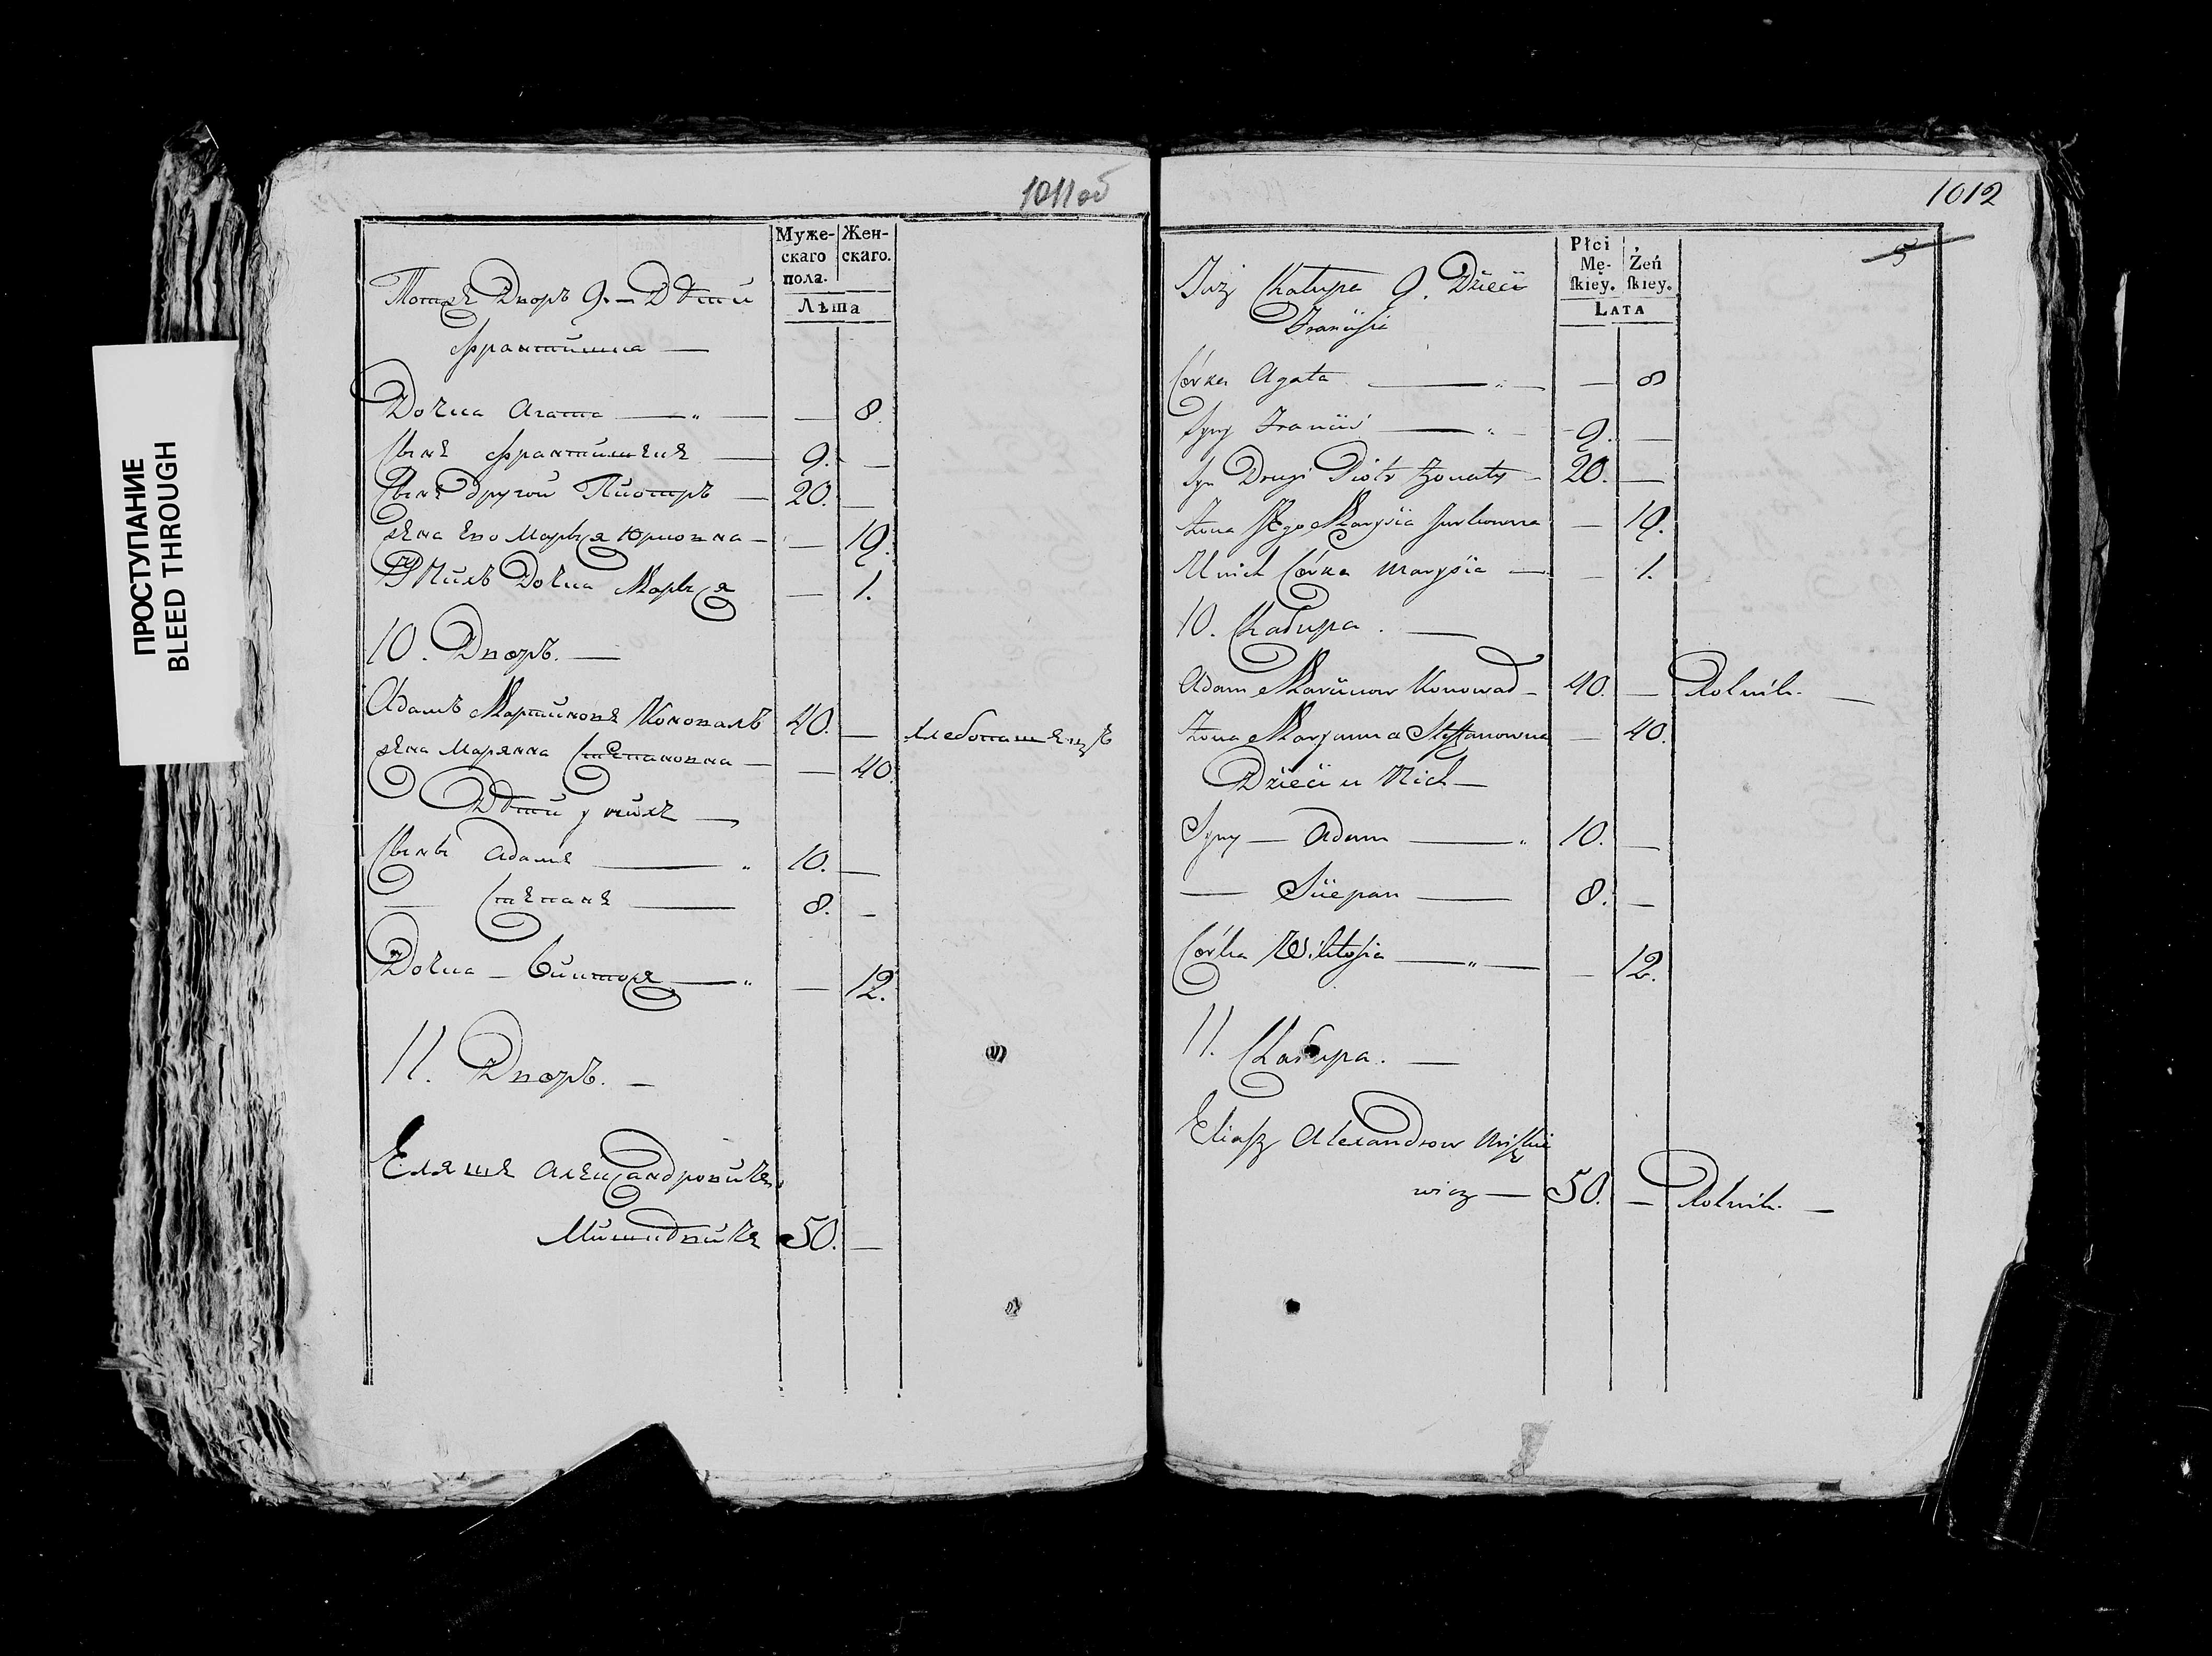 ПРОСТУПАНИЕ
BLEED THROUGH
1011об
Муже-
скаго
пола.
Жен-
скаго.
Лѣта
Тотже Дворъ 9. — Дѣти
Францишка —
Дочка Агата — " — — 8.
Сынъ Францишекъ — 9. —
Сынъ другой Пиотръ — 20. —
жена Его Марыся Юрковна — — 19.
У Нихъ Дочка Марыся — 1.
10. Дворъ. —
Адамъ Мартиновъ Коновалъ 40. — хлебопашецъ
жена Марянна Степановна — — 40.
Дѣти у нихъ —
Сыны Адамъ — " 10. —
— Степанъ — 8. —
Дочка — Виктося — " — 12.
11. Дворъ. —
Еляшъ Александровичъ
50. —
1012
5
Płci
Mę-
ſkiey.
Żeń
ſkiey.
Lata
Chałupa 9. Dzieci
Córka Agata — " — — 8
Syny Franciś — " — 9. —
Syn Drugi Piotr Żonaty — 20. —
Żona Jego Marysia Jurkowna — 19.
U nich Córka Marysia — — 1.
10. Chałupa. —
Adam Marcinow Konował — 40. — Rolnik. —
Żona Maryanna Steffanowna — 40.
Dzieci u Nich —
Syny — Adam — " 10. —
— Sciepan — 8. —
Córka Wiktosia — " — — 12.
11. Chałupa. —
Eliasz Alexandrow Miszkie
wicz — 50. — Rolnik. —